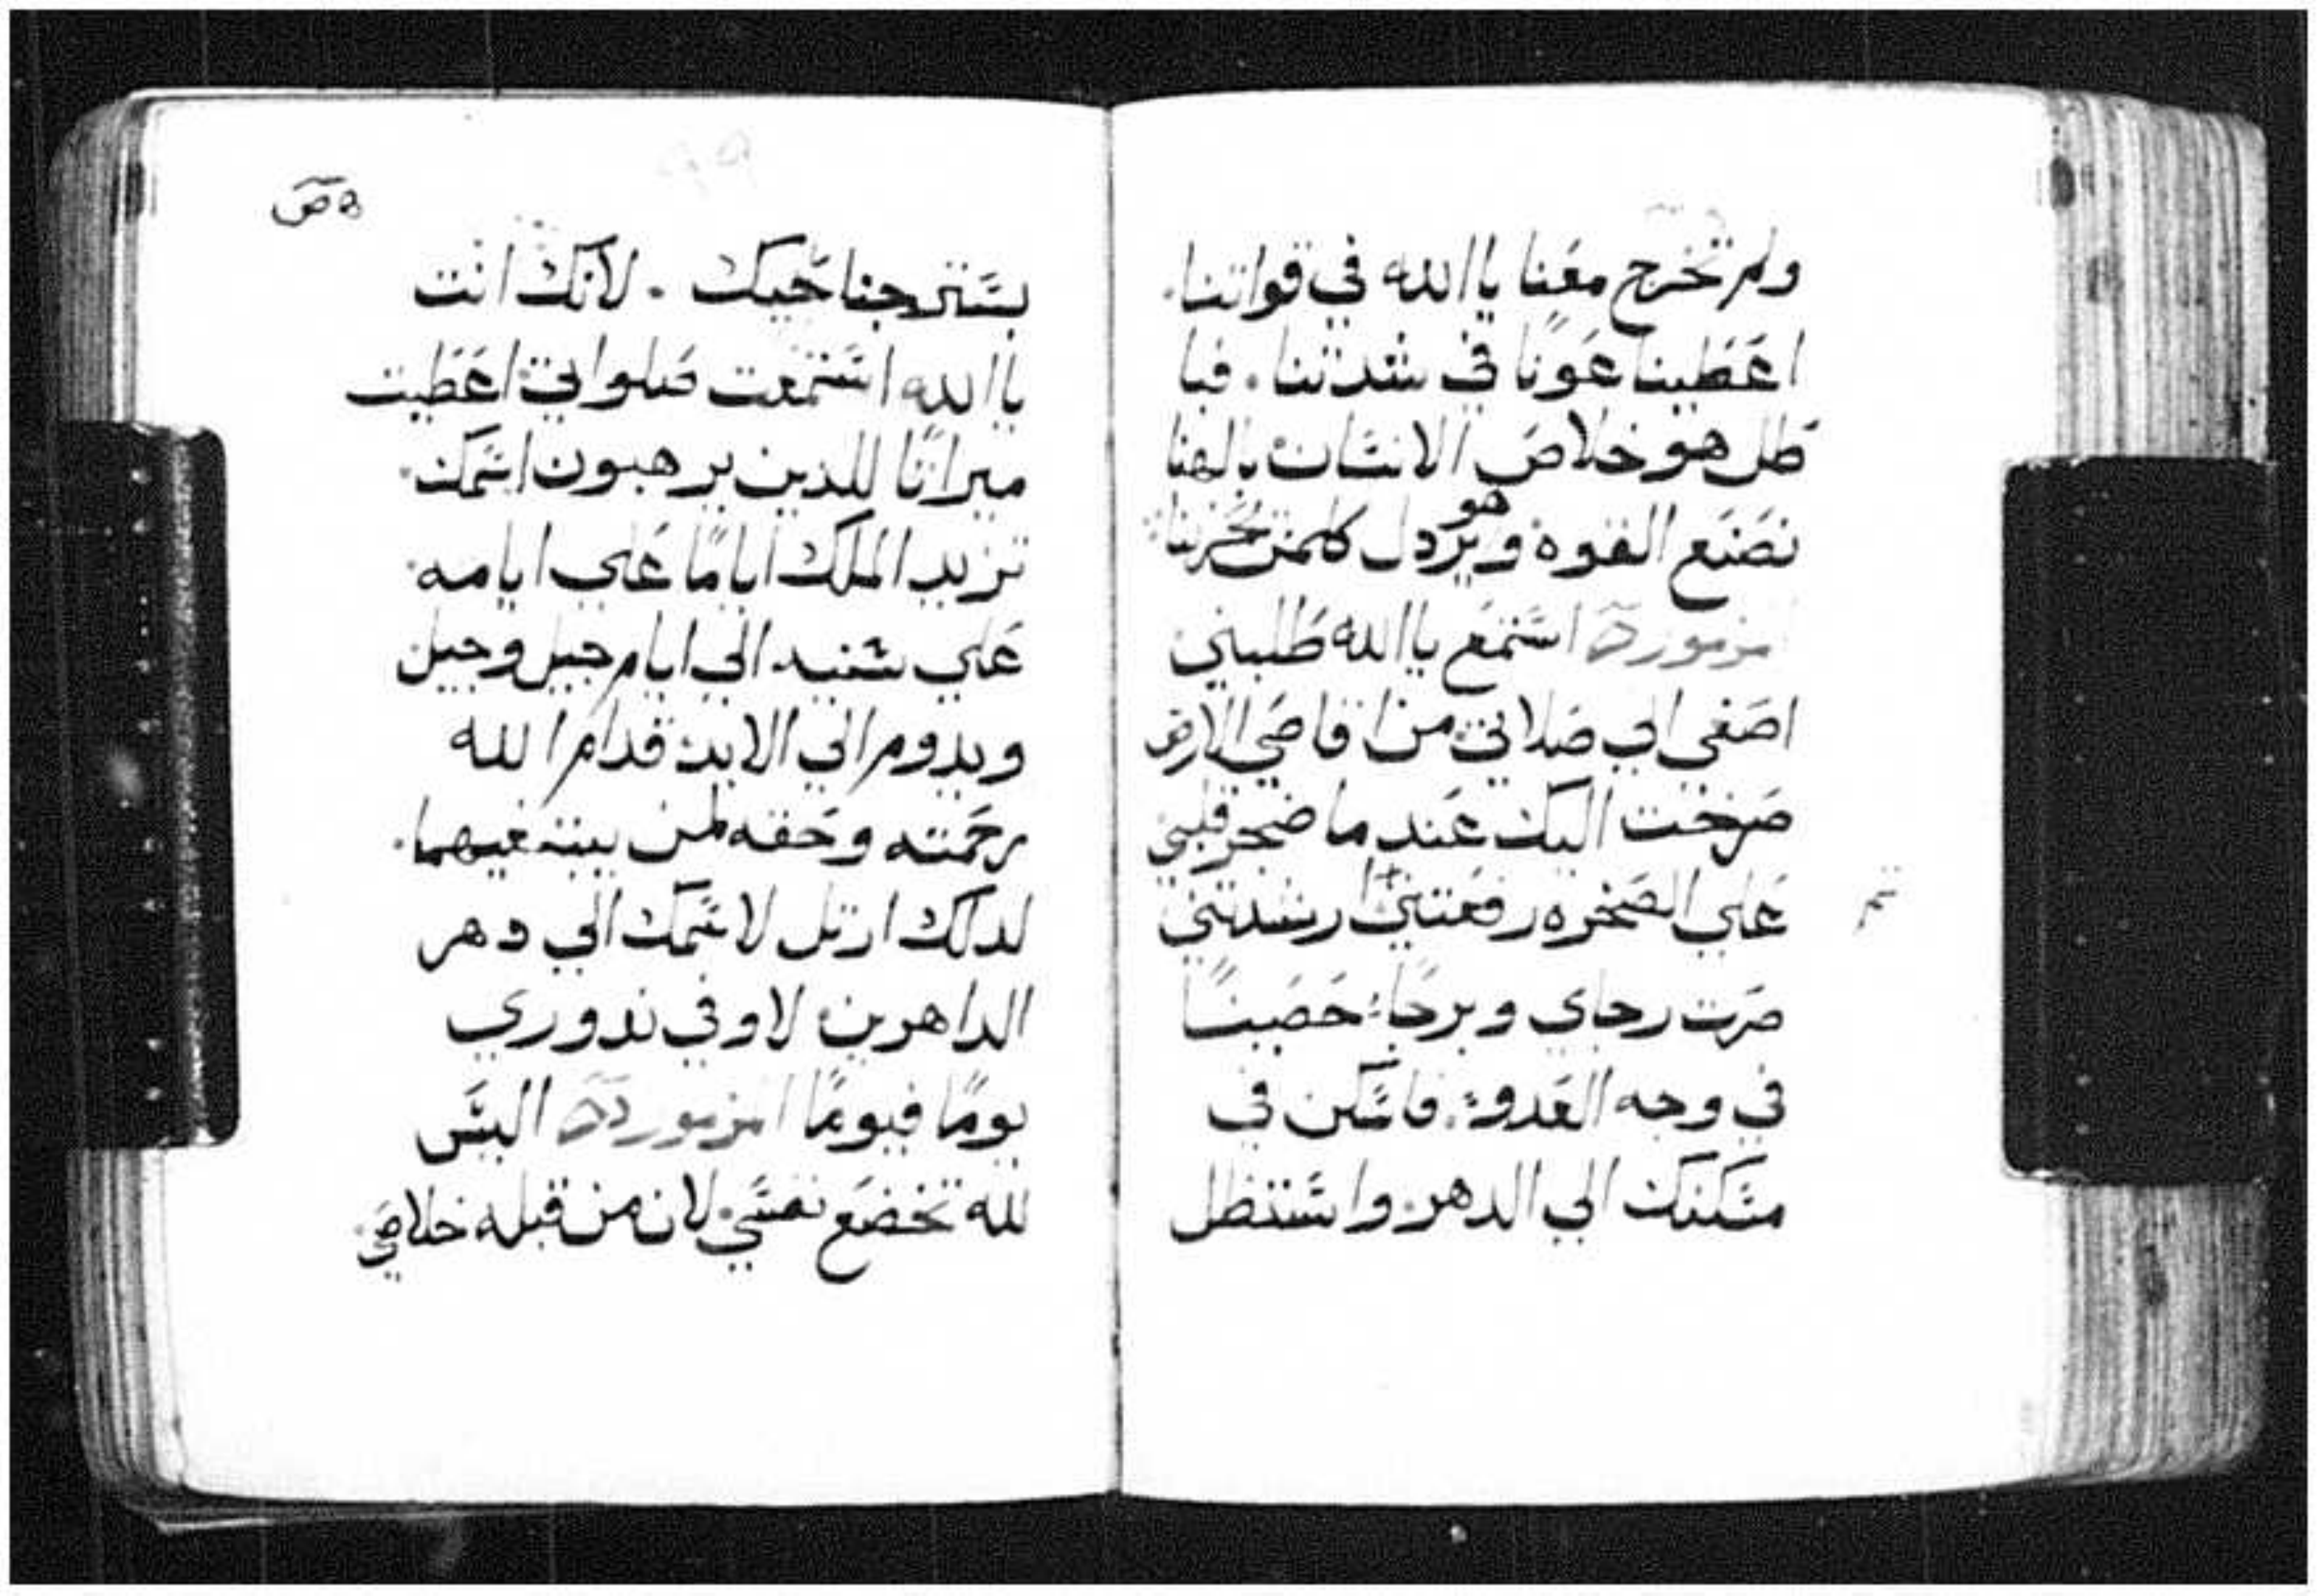 ولم تخرج معنا يا الله في قواتنا.
اعطينا عونًا في شدتنا. فبا
طل هو خلاص الانسان بالهنا
نصنع القوه وهو يردل كلمن يحزننا
مزمور استمع يا الله طلبتي
اصغي الي صلاتي من اقاصي الارض
صرخت اليك عند ما ضجر قلبي
علي الصخره رفعتني ارشدتني
صرت رجاي وبرجًا حصينًا
في وجه العدو. فاسكن في
مسكنك الي الدهر. واستظل
بستر جناحيك. لانك انت
يا الله استمعت صلواتي اعطيت
ميراثًا للدين يرهبون اسمك.
تزيد الملك ايامًا علي ايامه.
علي سنيه الي ايام جيل وجيل
ويدوم الي الابد قدام الله
رحمته وحقه لمن يبتغيهما.
لدلك ارتل لاسمك الي دهر
الداهرين لاوفي ندوري
يومًا فيومًا مزمور اليس
لله تخضع نفسي. لان من قبله خلاصي.